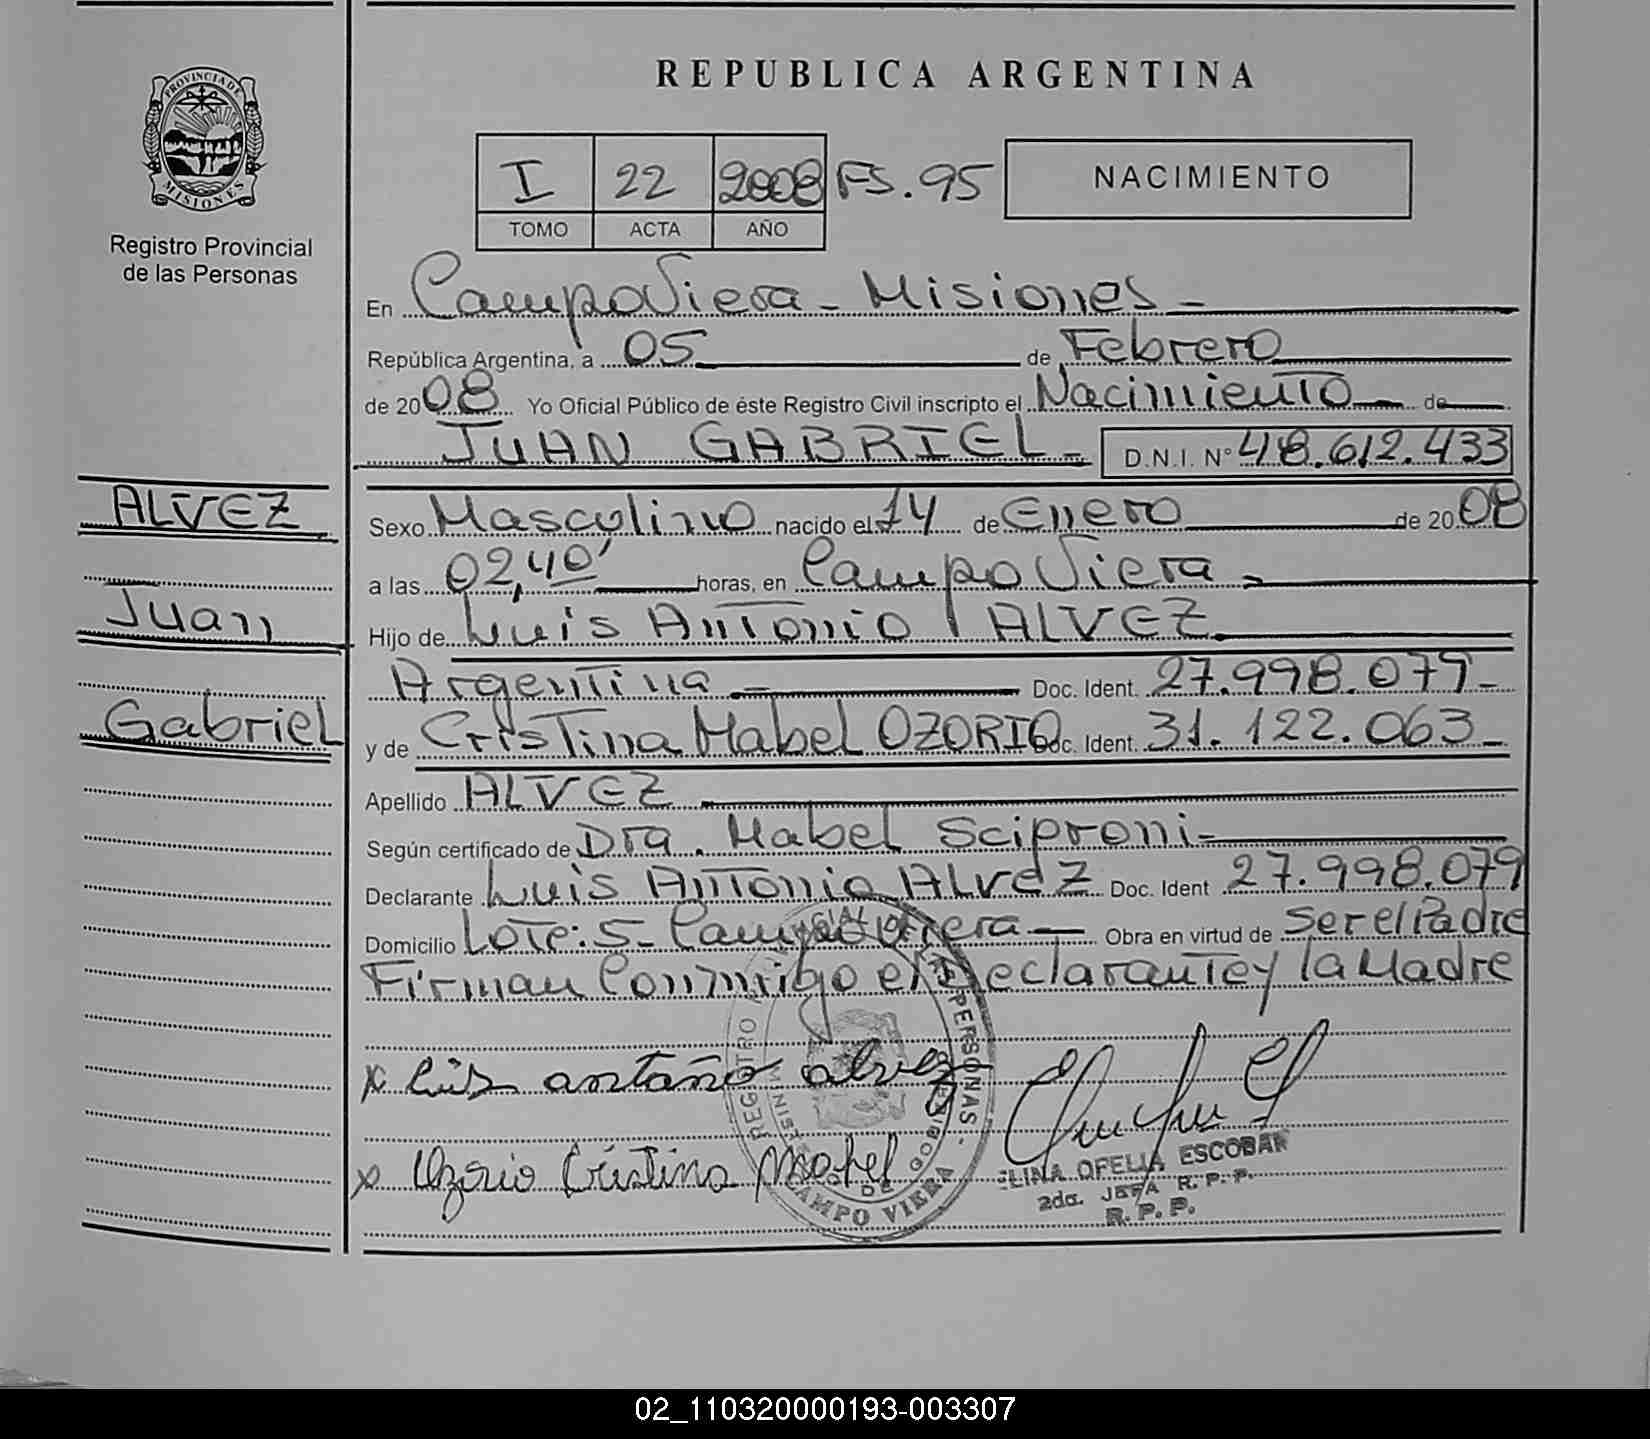 PROVINCIA DE
MISIONES
Registro Provincial
de las Personas
REPUBLICA ARGENTINA
I 22 2008 FS. 95
TOMO ACTA AÑO
NACIMIENTO
En CampoViera - Misiones -
República Argentina, a 05 de Febrero
de 2008 Yo Oficial Público de éste Registro Civil inscripto el Nacimiento de
JUAN GABRIEL - D.N.I. N° 48.612.433
ALVEZ
Juan
Gabriel
Sexo Masculino nacido el 14 de Enero de 2008
a las 02,40' horas, en Campo Viera -
Hijo de Luis Antonio ALVEZ
Argentina - Doc. Ident. 27.998.079-
y de Cristina Mabel OZORIO Doc. Ident. 31.122.063-
Apellido ALVEZ
Según certificado de Dra. Mabel Sciproni-
Declarante Luis Antonio ALVEZ Doc. Ident 27.998.079
Domicilio Lote: 5- Campo Viera - Obra en virtud de Ser el Padre
Firman Conmigo el Declarante y la Madre
x Luis antoño alvez
x Ozorio Cristina Mabel
REGISTRO PERSONAS
CAMPO VIERA
ELINA OFELIA ESCOBAR
2da. JEFA R.P.P.
R.P.P.
02_110320000193-003307